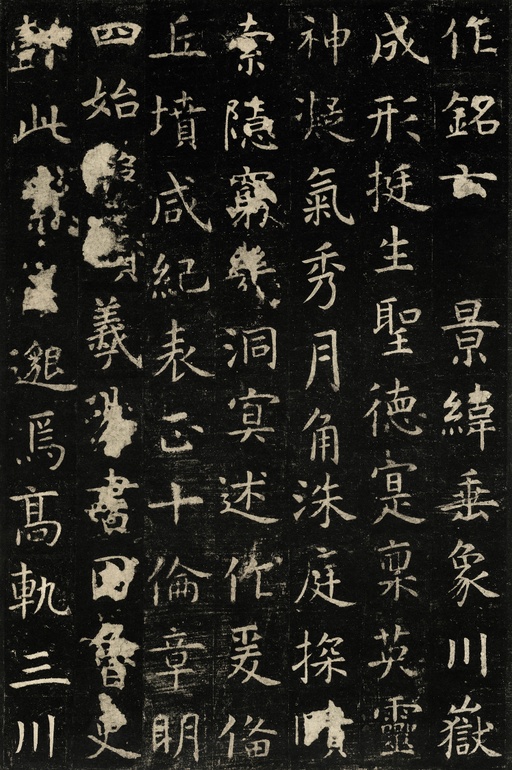 作銘云 景緯垂象川嶽
成形挺生聖德寔稟英靈
神凝氣秀月角洙庭探賾
索隱窮幾洞冥述作爰備
丘墳咸紀表正十倫章明
四始羲易書因魯史
懿此邈焉高軌三川